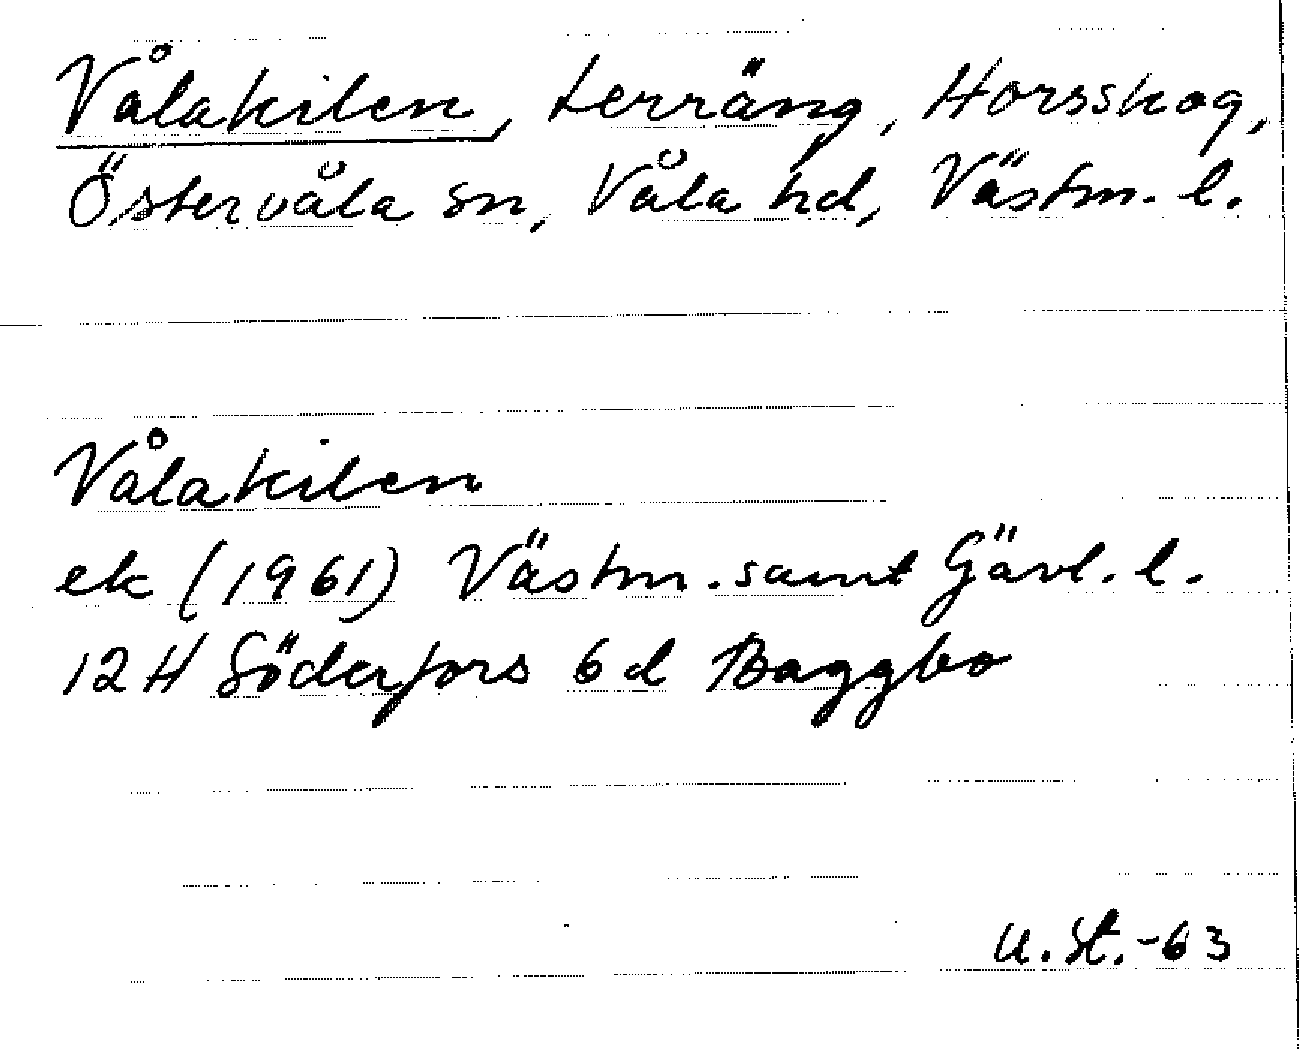 Vålakilen, terräng, Horsskog,
Östervåla sn, Våla hd, Västm. l.
Vålakilen
ek (1961) Västm. samt Gävl. l.
12 H Söderfors 6 d Baggbo
U. St. -63